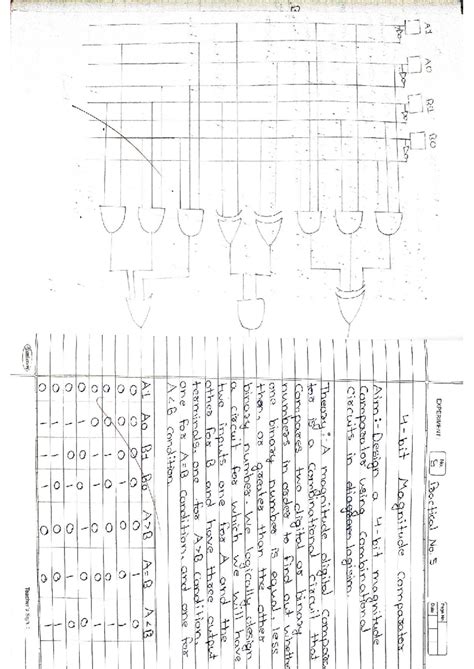 A1 A0 B1 B0
EXPERIMENT No. 5 Practical No. 5 Page No.
Date
4-bit Magnitude comparator
Aim:- Design a 4-bit magnitude
Comparator using Combinational
circuits in diagram logisim.
Theory:- A magnitude digital Compara
tor is a Combinational Circuit that
Compares two digital or binary
numbers in order to find out whether
one binary number is equal, less
than, or greater than the other
binary number. We logically design
a circuit for which we will have
two inputs one for A and the
other for B and have three output
terminals, one for A>B condition,
one for A=B condition, and one for
A<B condition.
A1 A0 B1 B0 A>B A=B A<B
0 0 0 0 0 1 0
0 0 0 1 0 0 1
0 0 1 0 0 0 1
0 0 1 1 0 0 1
0 1 0 0 1 0 0
0 1 0 1 0 1 0
0 1 1 0 0 0 1
0 1 1 1 0 0 1
Teacher's Sign :